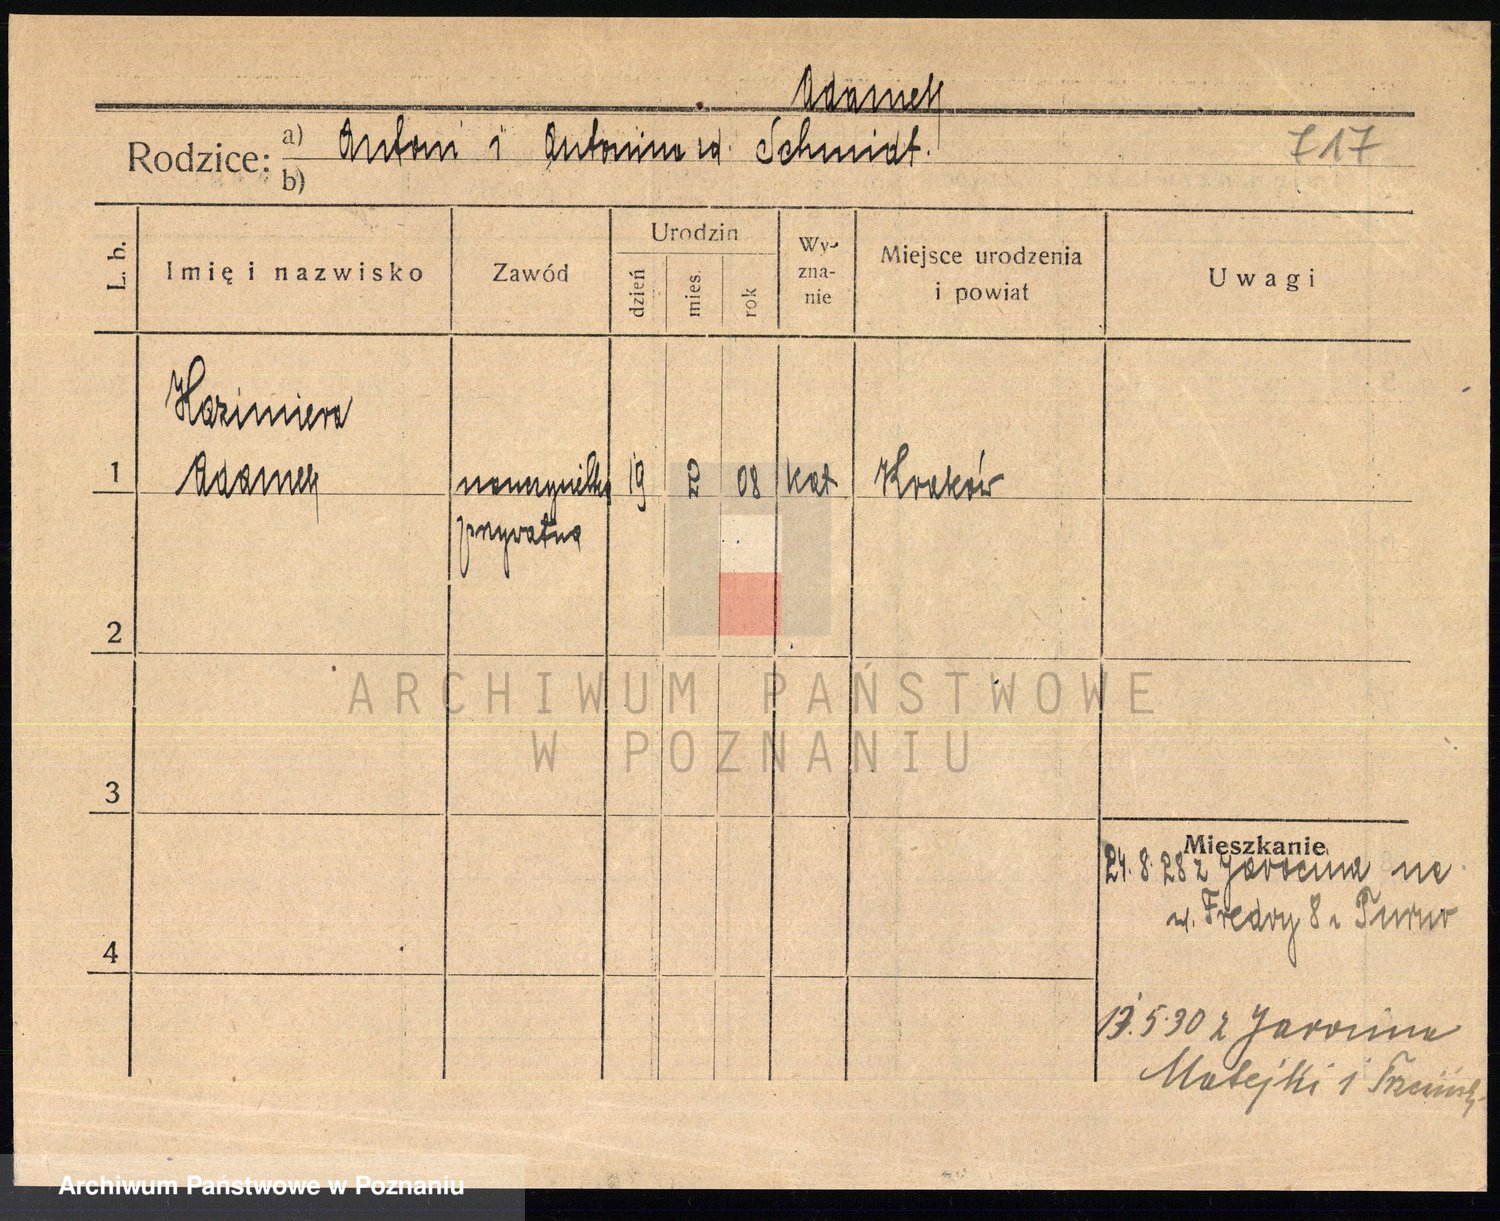 Adamek
Rodzice: a) Antoni i Antonina id. Schmidt.
b)
717
L. b.
Imię i nazwisko
Zawód
Urodzin
dzień
mies.
rok
Wy-
zna-
nie
Miejsce urodzenia
i powiat
Uwagi
Kazimiera
1 Adamek nauczycielka 19 2 08 kat Kraków
prywatna
2
ARCHIWUM PAŃSTWOWE
W POZNANIU
3
Mieszkanie
24.8.28 z Jarocina na
ul. Fredry 8 u
4
13.5.30 z Jarocina
Matejki 1
Archiwum Państwowe w Poznaniu